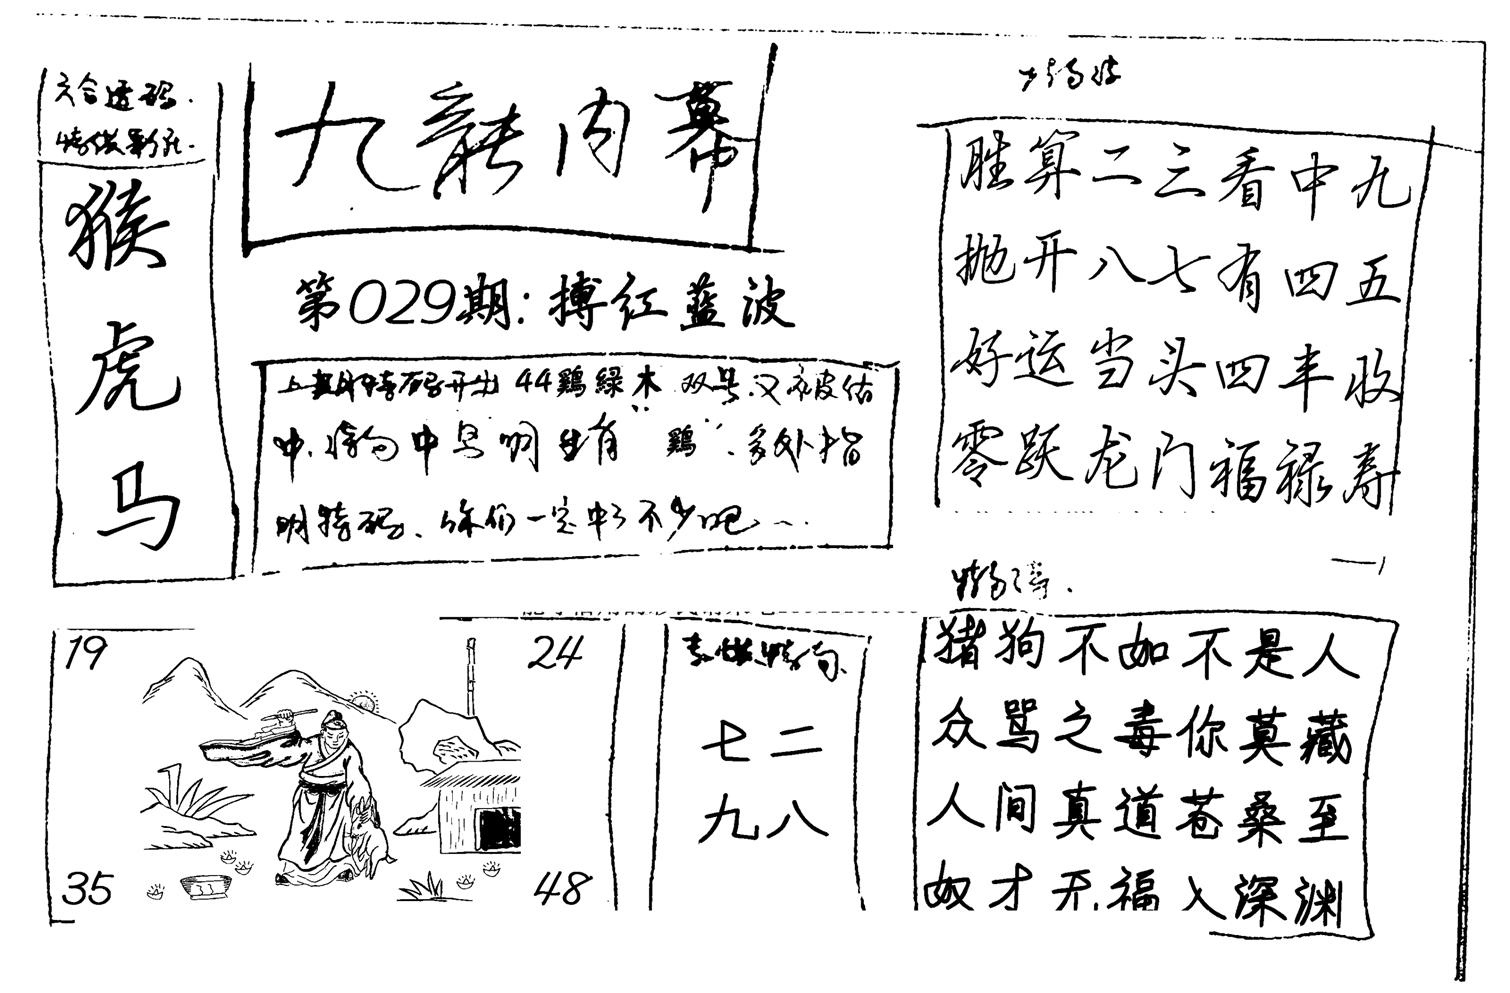 六合透码.
猴
虎
马
九龍内幕
第029期:搏红蓝波
上期特码开出 44鷄緑木 双号.又被估
中.特句中早明生肖"鷄".多处指
明特码、你们一定中了不少吧
胜算二三看中九
抛开八七有四五
好运当头四丰收
零跃龙门福禄寿
19
24
35
48
七二
九八
猪狗不如不是人
众骂之毒你莫藏
人间真道苍桑至
奴才无福入深渊